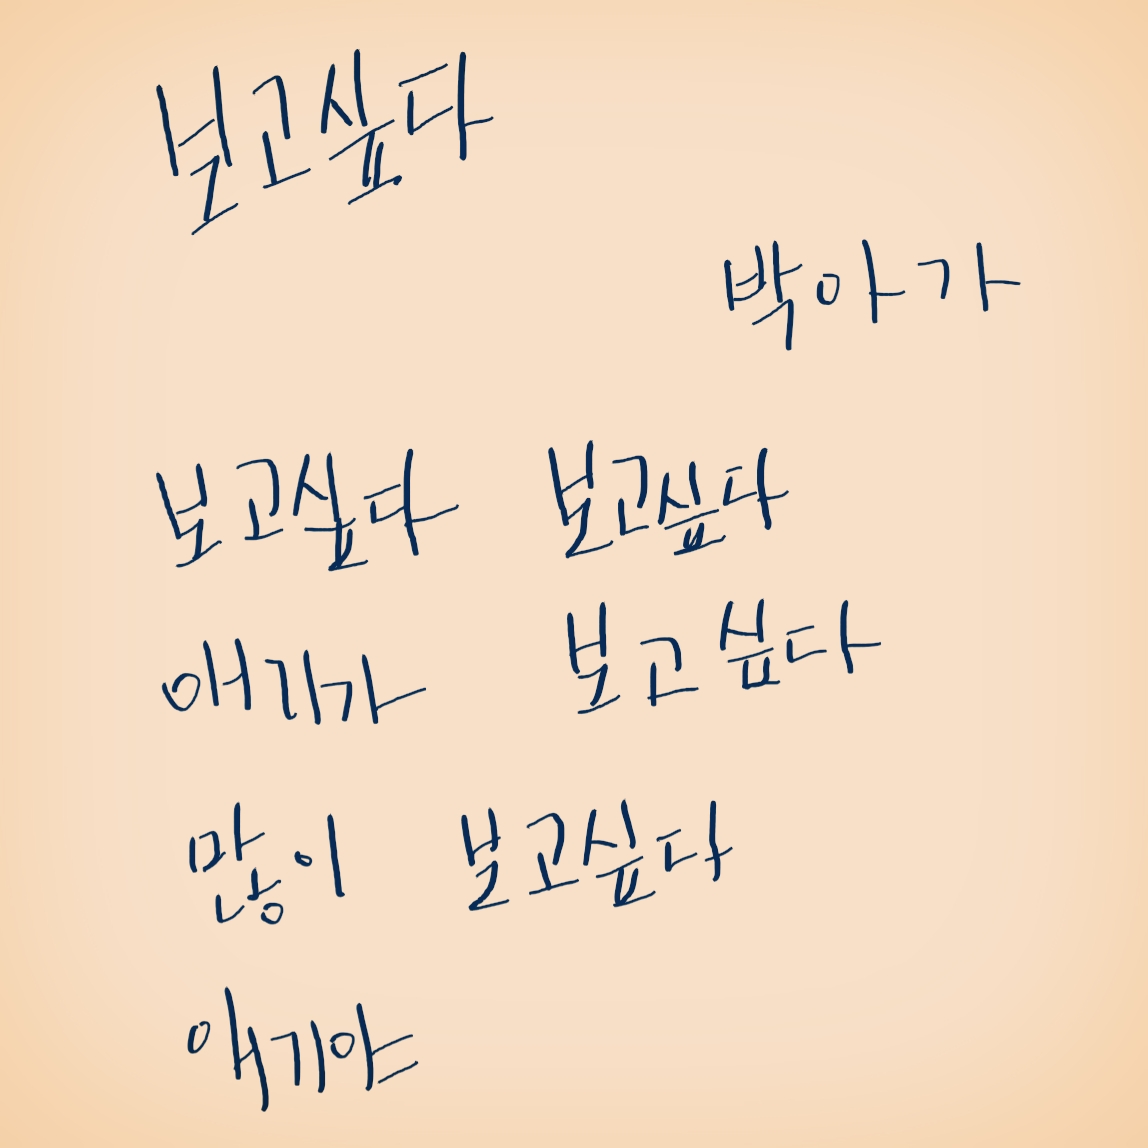 보고싶다
박아가
보고싶다 보고싶다
애기가 보고싶다
많이 보고싶다
애기야